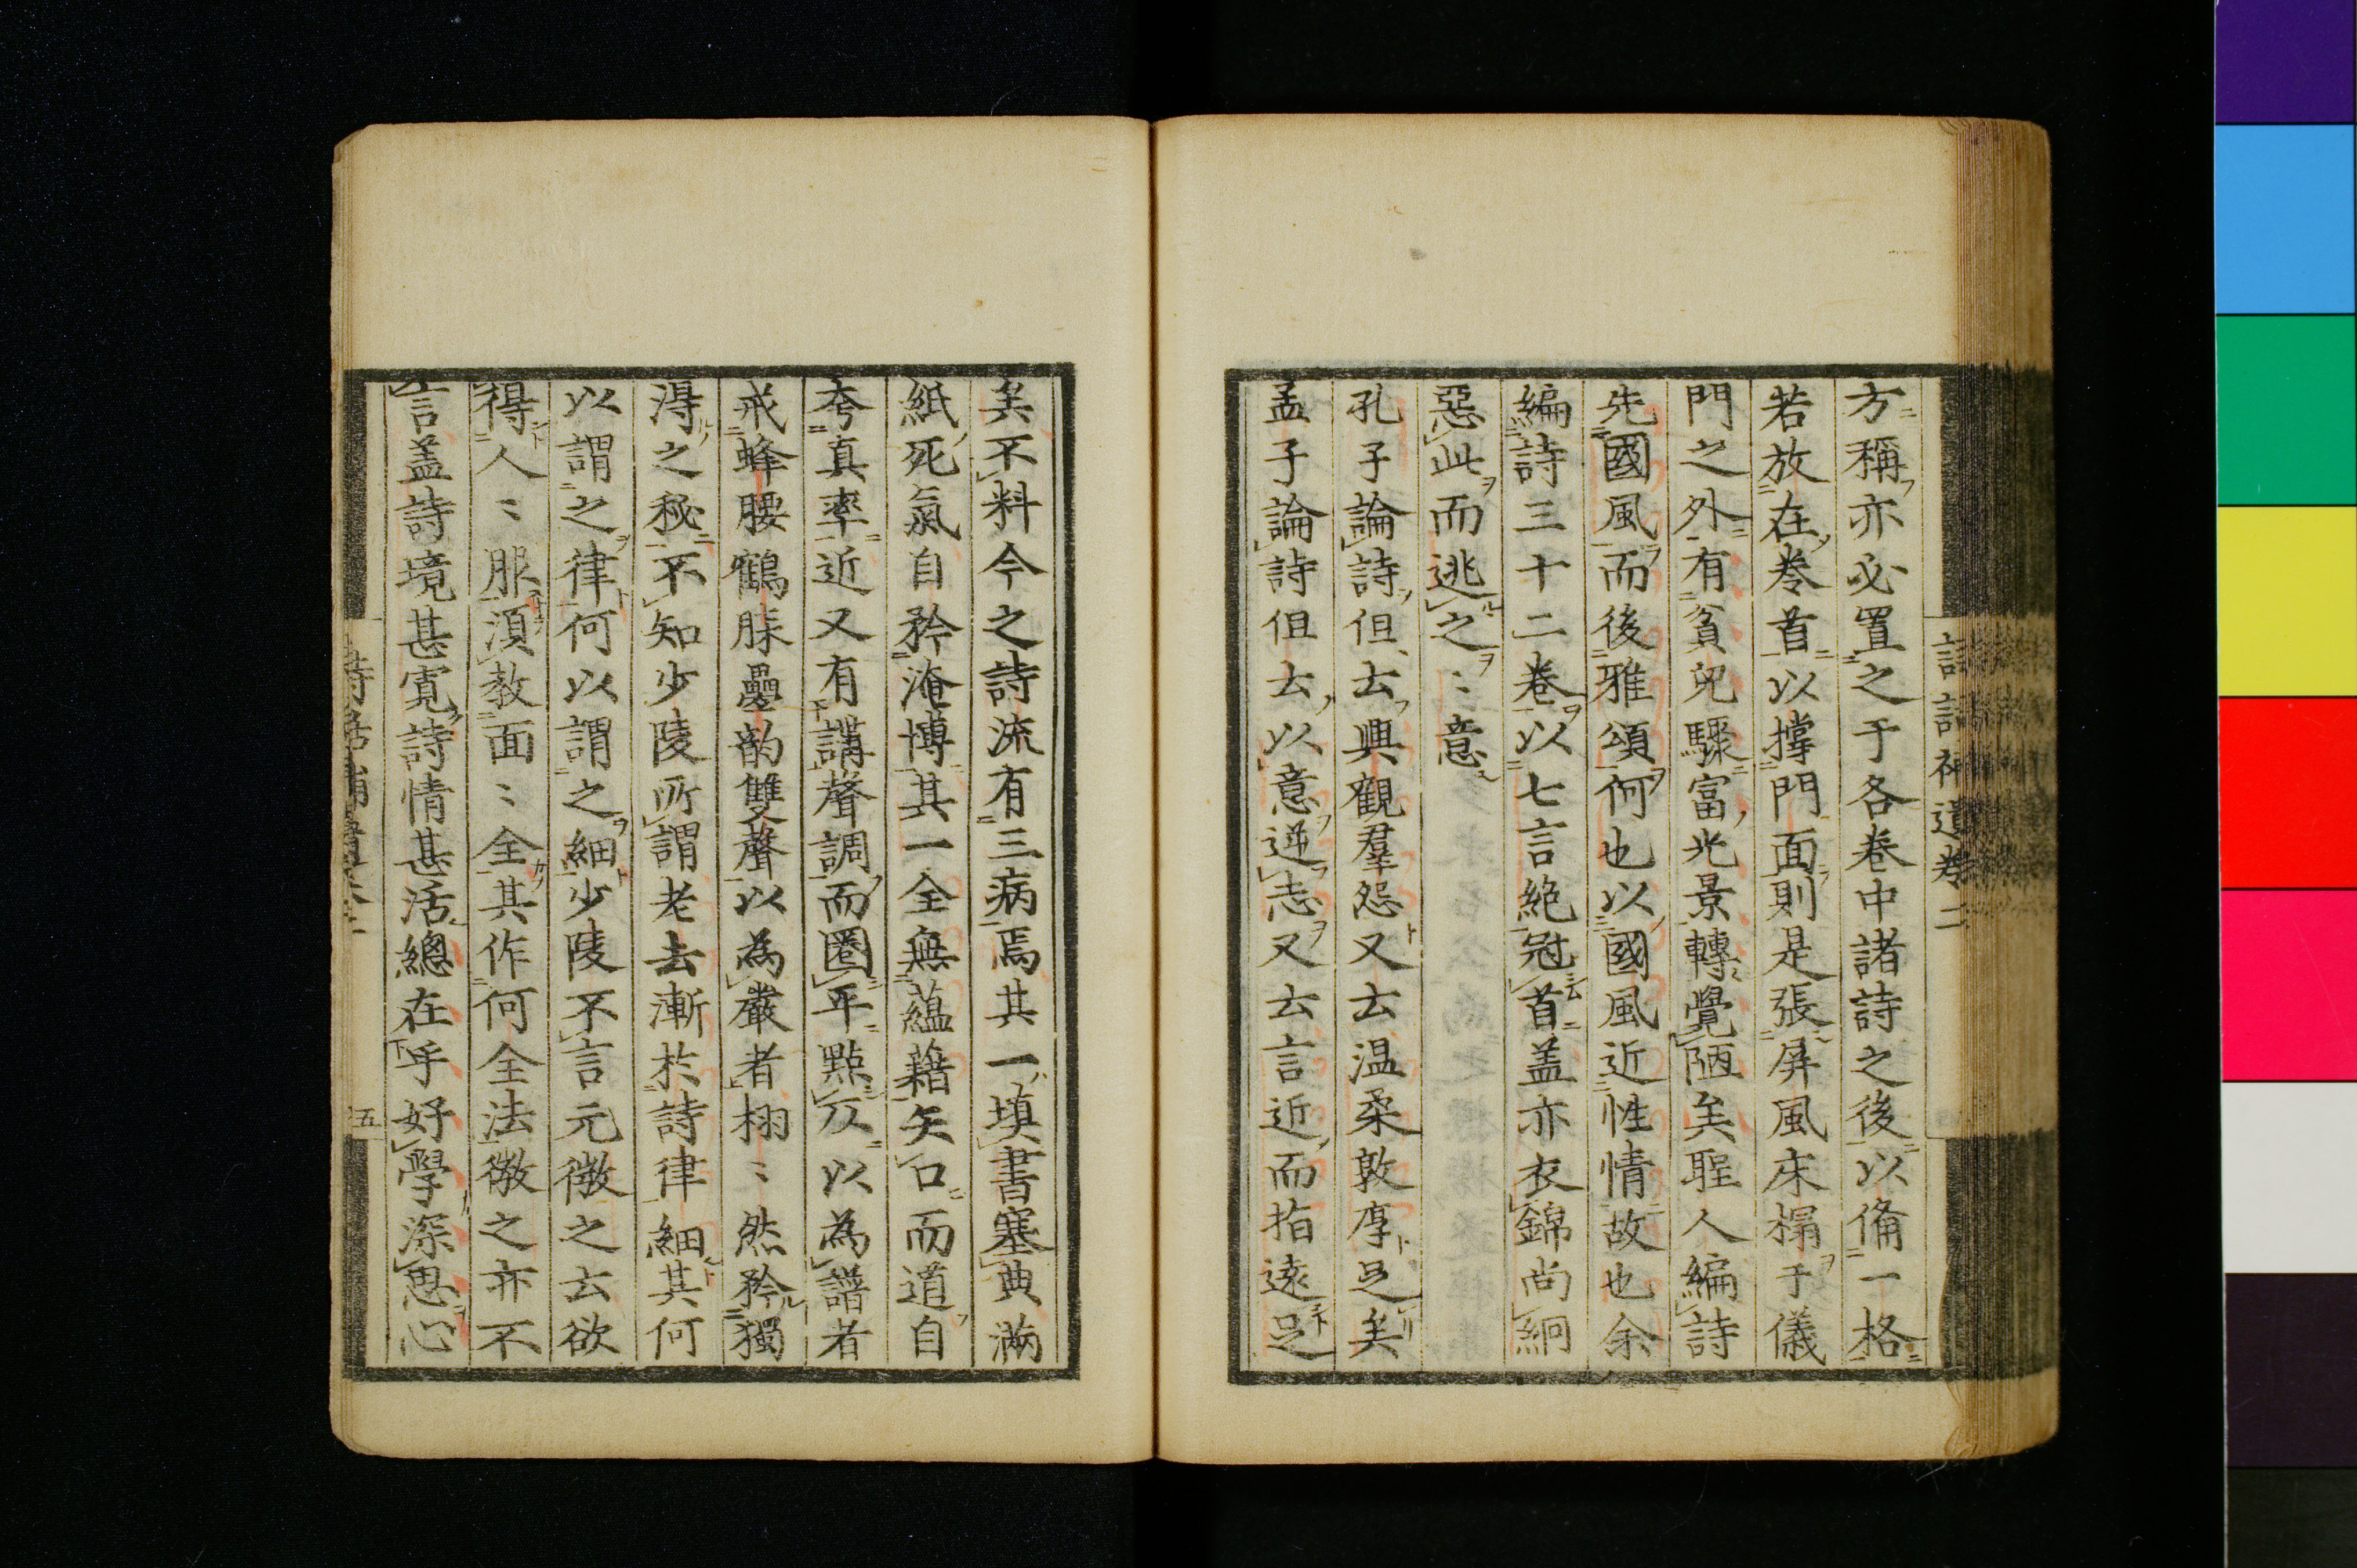 方稱亦必置之于各卷中諸詩之後以備一格
若放在卷首以撐門面則是張屏風床榻于儀
門之外有貧兒驟富光景轉覺陋矣聖人編詩
先國風而後雅頌何也以國風近性情故也余
編詩三十二卷以七言絶冠首盖亦衣錦尚絅
惡此而逃之〻意
孔子論詩但去興觀羣怨又去温柔敦厚足矣
孟子論詩但去以意逆志又去言近而指遠足
矣不料今之詩流有三病焉其一填書塞典滿
紙死氣自矜淹博其一全無蘊藉矢口而道自
夸真率近又有講聲調而圈平點仄以為譜者
戒蜂腰鶴膝疊韵雙聲以為嚴者栩〻然矜獨
得之秘不知少陵所謂老去漸於詩律細其何
以謂之律何以謂之細少陵不言元微之云欲
得人〻服須教面〻全其作何全法微之亦不
言盖詩境甚寬詩情甚活總在乎好學深思心
詩話補遺卷二
五